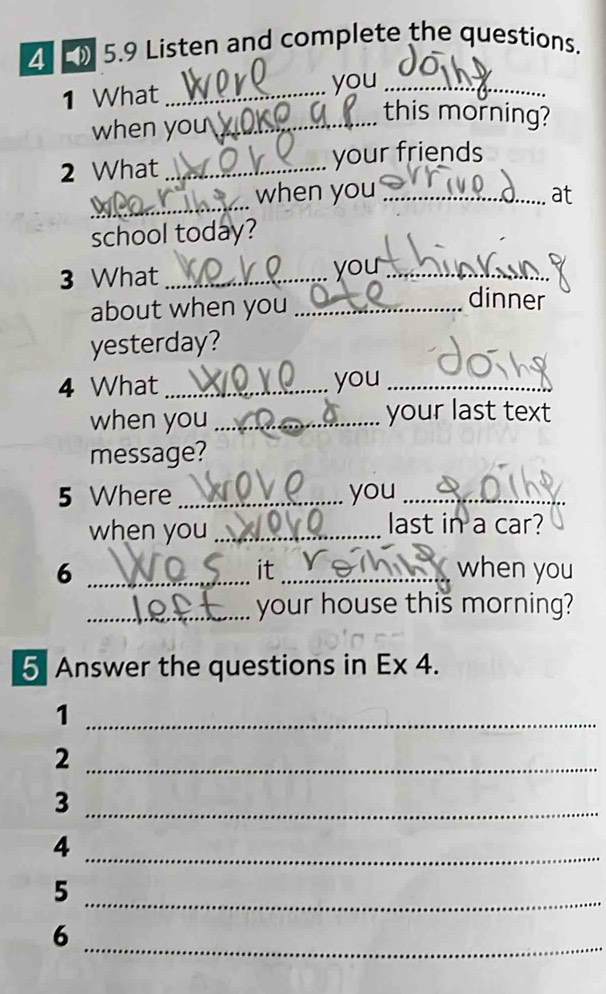 4 5.9 Listen and complete the questions.
1 What were you doing
when you woke up this morning?
2 What were your friends
wearing when you arrived at
school today?
3 What were you thinking
about when you ate dinner
yesterday?
4 What were you doing
when you read your last text
message?
5 Where were you going
when you were last in a car?
6 Was it raining when you
left your house this morning?
5 Answer the questions in Ex 4.
1
2
3
4
5
6